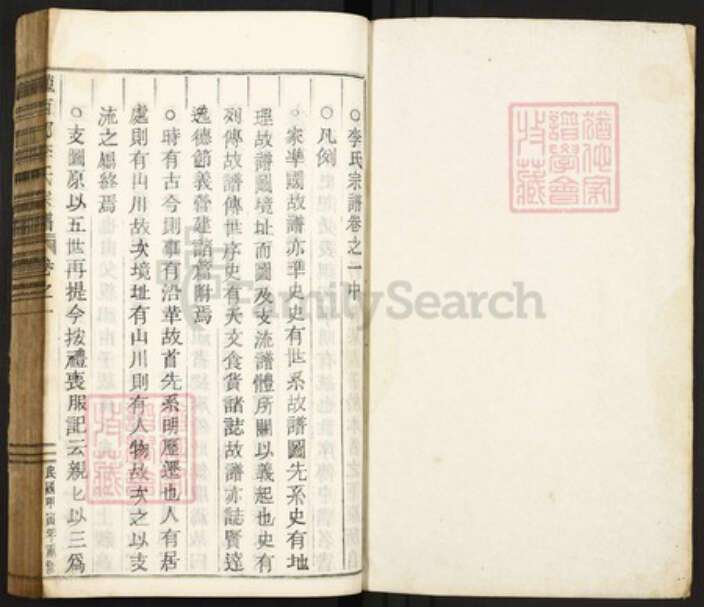 李氏宗譜卷之一中
○凡例
○家準國故譜亦準史史有世系故譜圖先系史有地
理故譜圖境址而圖及支流譜體所關以義起也史有
列傳故譜傳世序史有天文食貨諸誌故譜亦誌賢達
逸德節義營建諸　附焉
○時有古今則事有沿革故首先系明歷遷也人有居
處則有山川故次境址有山川則有人物故次之以支
流之　終焉
○支圖原以五世再提今按禮喪服記云親匕以三為
李氏宗譜　卷之一
民國甲寅年重修
FamilySearch